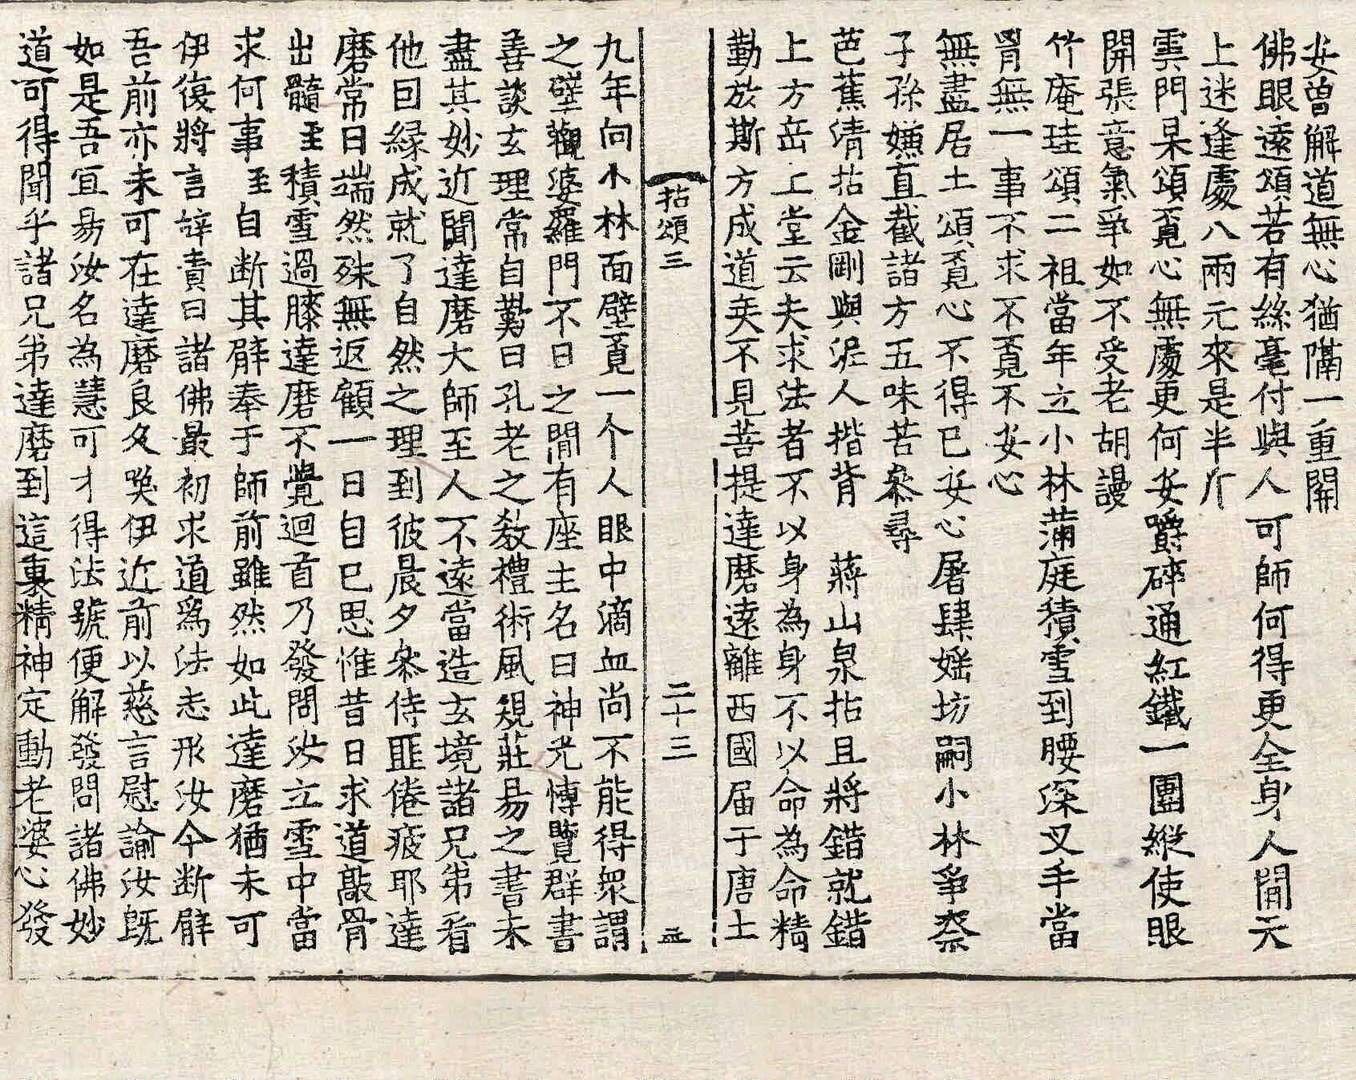 安曾解道無心猶隔一重關
佛眼遠頌若有絲毫付與人可師何得更全身人間天
上迷逢處八兩元來是半斤
雲門杲頌覔心無處更何安嚼碎通紅鐵一團縱使眼
開張意氣爭如不受老胡謾
竹庵珪頌二祖當年立小林滿庭積雪到腰深叉手當
胷無一事不求不覔不安心
無盡居士頌覔心不得已安心屠肆婬坊嗣小林爭祭
子孫嫌直截諸方五味苦叅尋
芭蕉清拈金剛與泥人揩背　蔣山泉拈且將錯就錯
上方岳上堂云夫求法者不以身為身不以命為命精
勤於斯方成道矣不見菩提達磨遠離西國届于唐土
拈頌三　二十三
九年向小林面壁覔一个人眼中滴血尚不能得衆謂
之壁觀婆羅門不日之閒有座主名曰神光愽覽群書
善談玄理常自歎曰孔老之教禮術風規莊昜之書未
盡其妙近聞達磨大師至人不遠當造玄境諸兄弟看
他因緣成就了自然之理到彼晨夕叅侍匪倦疲耶達
磨常日端然殊無返顧一日自已思惟昔日求道敲骨
出髓至積雪過膝達磨不覺迴首乃發問汝立雪中當
求何事至自断其臂奉于師前雖然如此達磨猶未可
伊復將言辞責曰諸佛最初求道爲法忘形汝今断臂
吾前亦未可在達磨良久喚伊近前以慈言慰論汝既
如是吾宜昜汝名為慧可才得法號便解發問諸佛妙
道可得聞乎諸兄弟達磨到這裏精神定動老婆心發